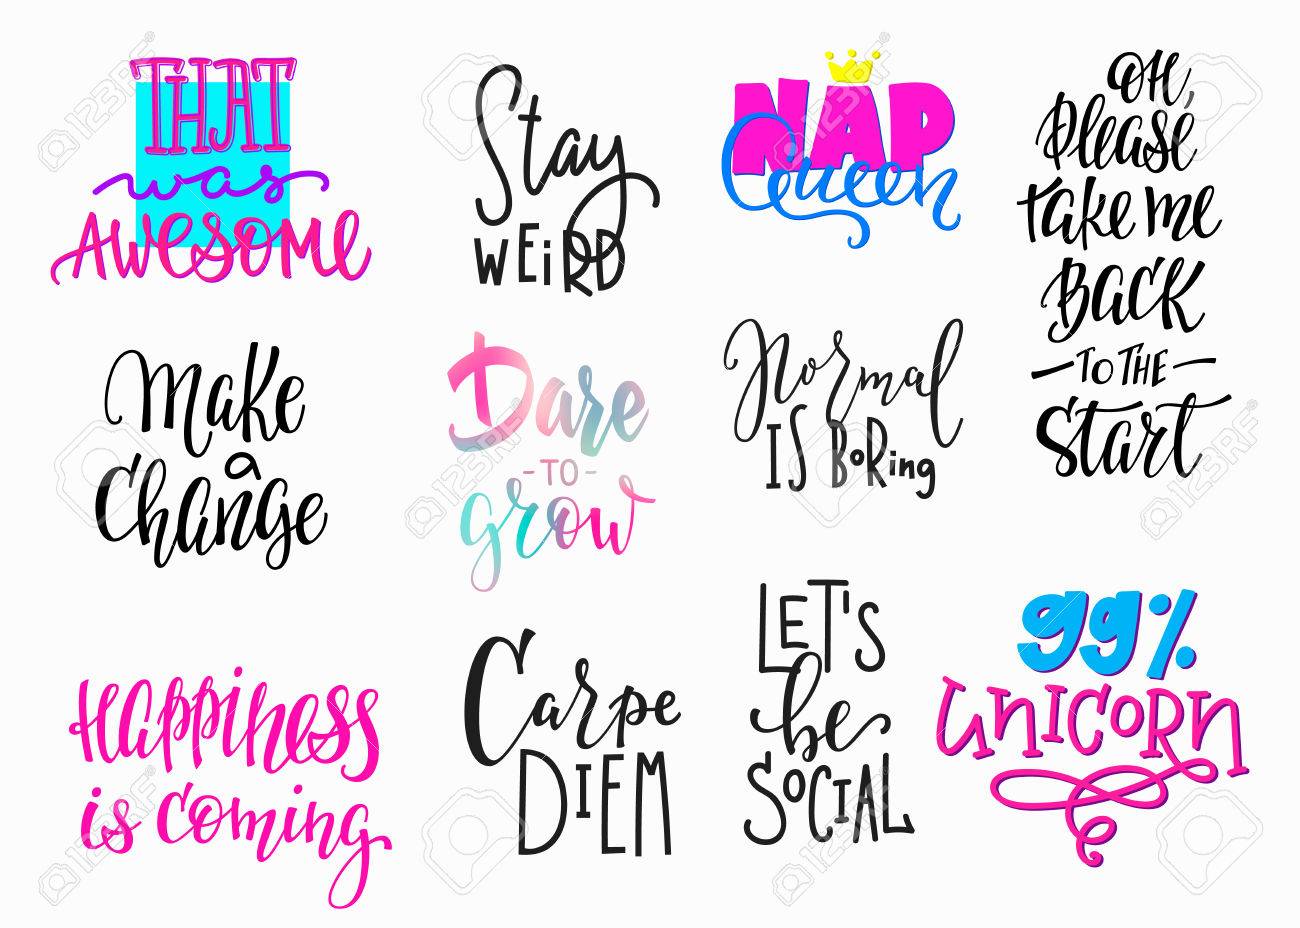 THAT
was
AWESOME
Stay
WEiRD
NAP
Queen
OH,
Please
take me
BACK
TO THE
Start
Make
a
Change
Dare
TO
grow
Normal
IS BoRing
Happiness
is coming
Carpe
DIEM
LET'S
be
SOCIAL
99%
UNICORN
123RF